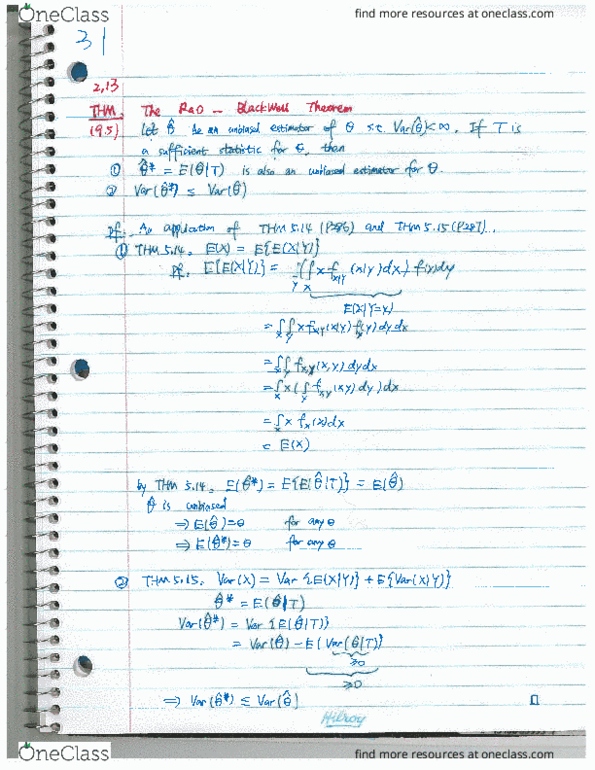 OneClass
find more resources at oneclass.com
31
2,13
THM. The Rao - Blackwell Theorem
(9.5) Let θ̂ be an unbiased estimator of θ s.t. Var(θ̂)<∞. If T is
a sufficient statistic for θ, then
① θ̂* = E(θ̂|T) is also an unbiased estimator for θ.
② Var(θ̂*) ≤ Var(θ̂)
Pf: An application of THM 5.14 (P286) and THM 5.15 (P287).
① THM 5.14. E(X) = E{E(X|Y)}
Pf. E{E(X|Y)} = ∫y(∫x x f x|y (x|y)dx) f(y)dy
E(X|Y=y)
= ∫x∫y x f x|y (x|y) f(y) dy dx
= ∫x∫y f x,y (x,y) dy dx
= ∫x x (∫y f x,y (x,y) dy) dx
= ∫x x f x (x) dx
= E(X)
by THM 5.14, E(θ̂*) = E{E(θ̂|T)} = E(θ̂)
θ̂ is unbiased
⇒ E(θ̂)=θ for any θ
⇒ E(θ̂*)=θ for any θ
② THM 5.15. Var(X) = Var{E(X|Y)} + E{Var(X|Y)}
θ̂* = E(θ̂|T)
Var(θ̂*) = Var{E(θ̂|T)}
= Var(θ̂) - E{Var(θ̂|T)}
≥0
≥0
⇒ Var(θ̂*) ≤ Var(θ̂)
Hilroy
OneClass
find more resources at oneclass.com